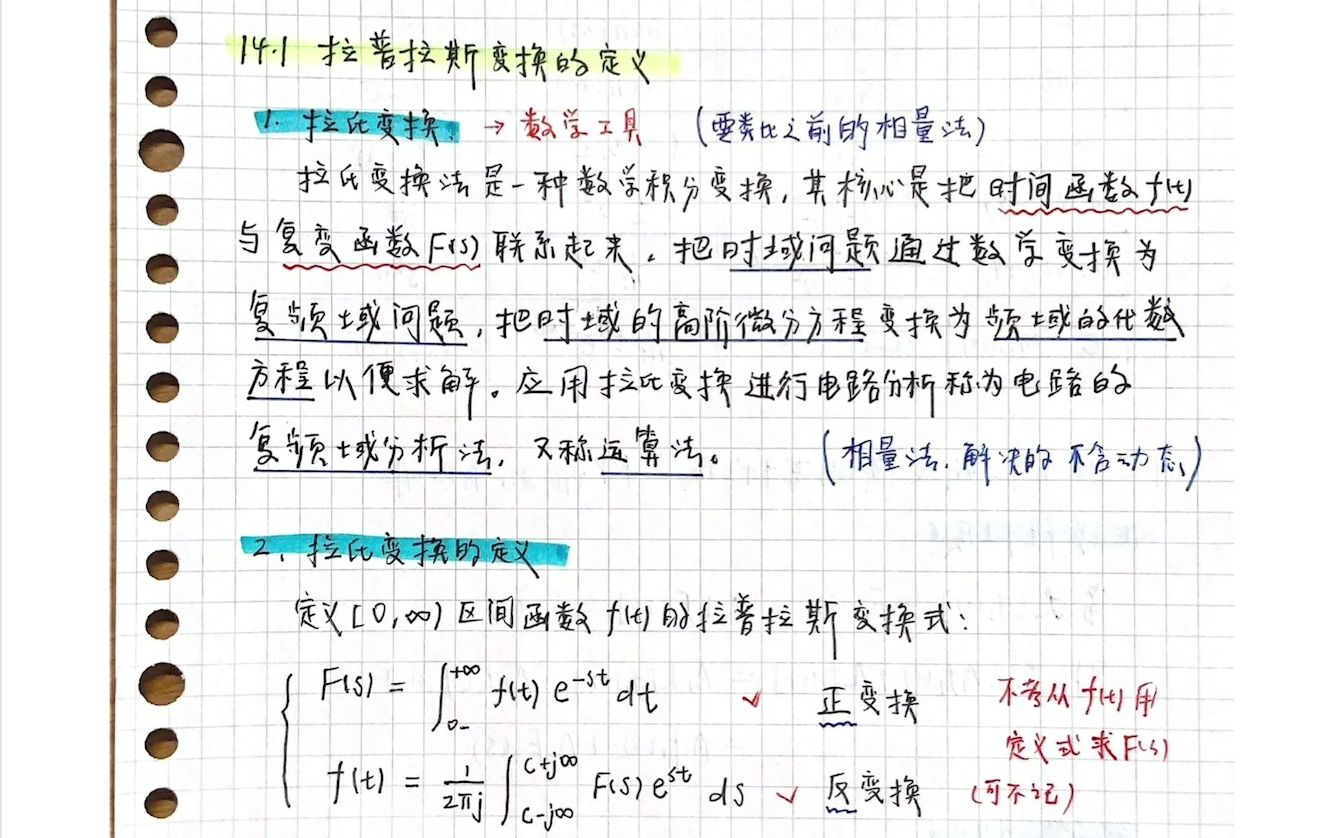 14.1 拉普拉斯变换的定义
1. 拉氏变换. → 数学工具 (要类比之前的相量法)
拉氏变换法是一种数学积分变换, 其核心是把时间函数f(t)
与复变函数F(s)联系起来, 把时域问题通过数学变换为
复频域问题, 把时域的高阶微分方程变换为频域的代数
方程以便求解。应用拉氏变换进行电路分析称为电路的
复频域分析法, 又称运算法。 (相量法.解决的不含动态)
2. 拉氏变换的定义
定义[0,∞)区间函数f(t)的拉普拉斯变换式:
F(s) = ∫_{0-}^{+∞} f(t) e^{-st} dt ✓ 正变换 不考从f(t)用
定义式求F(s)
f(t) = \frac{1}{2πj} ∫_{c-j∞}^{c+j∞} F(s) e^{st} ds ✓ 反变换 (可不记)